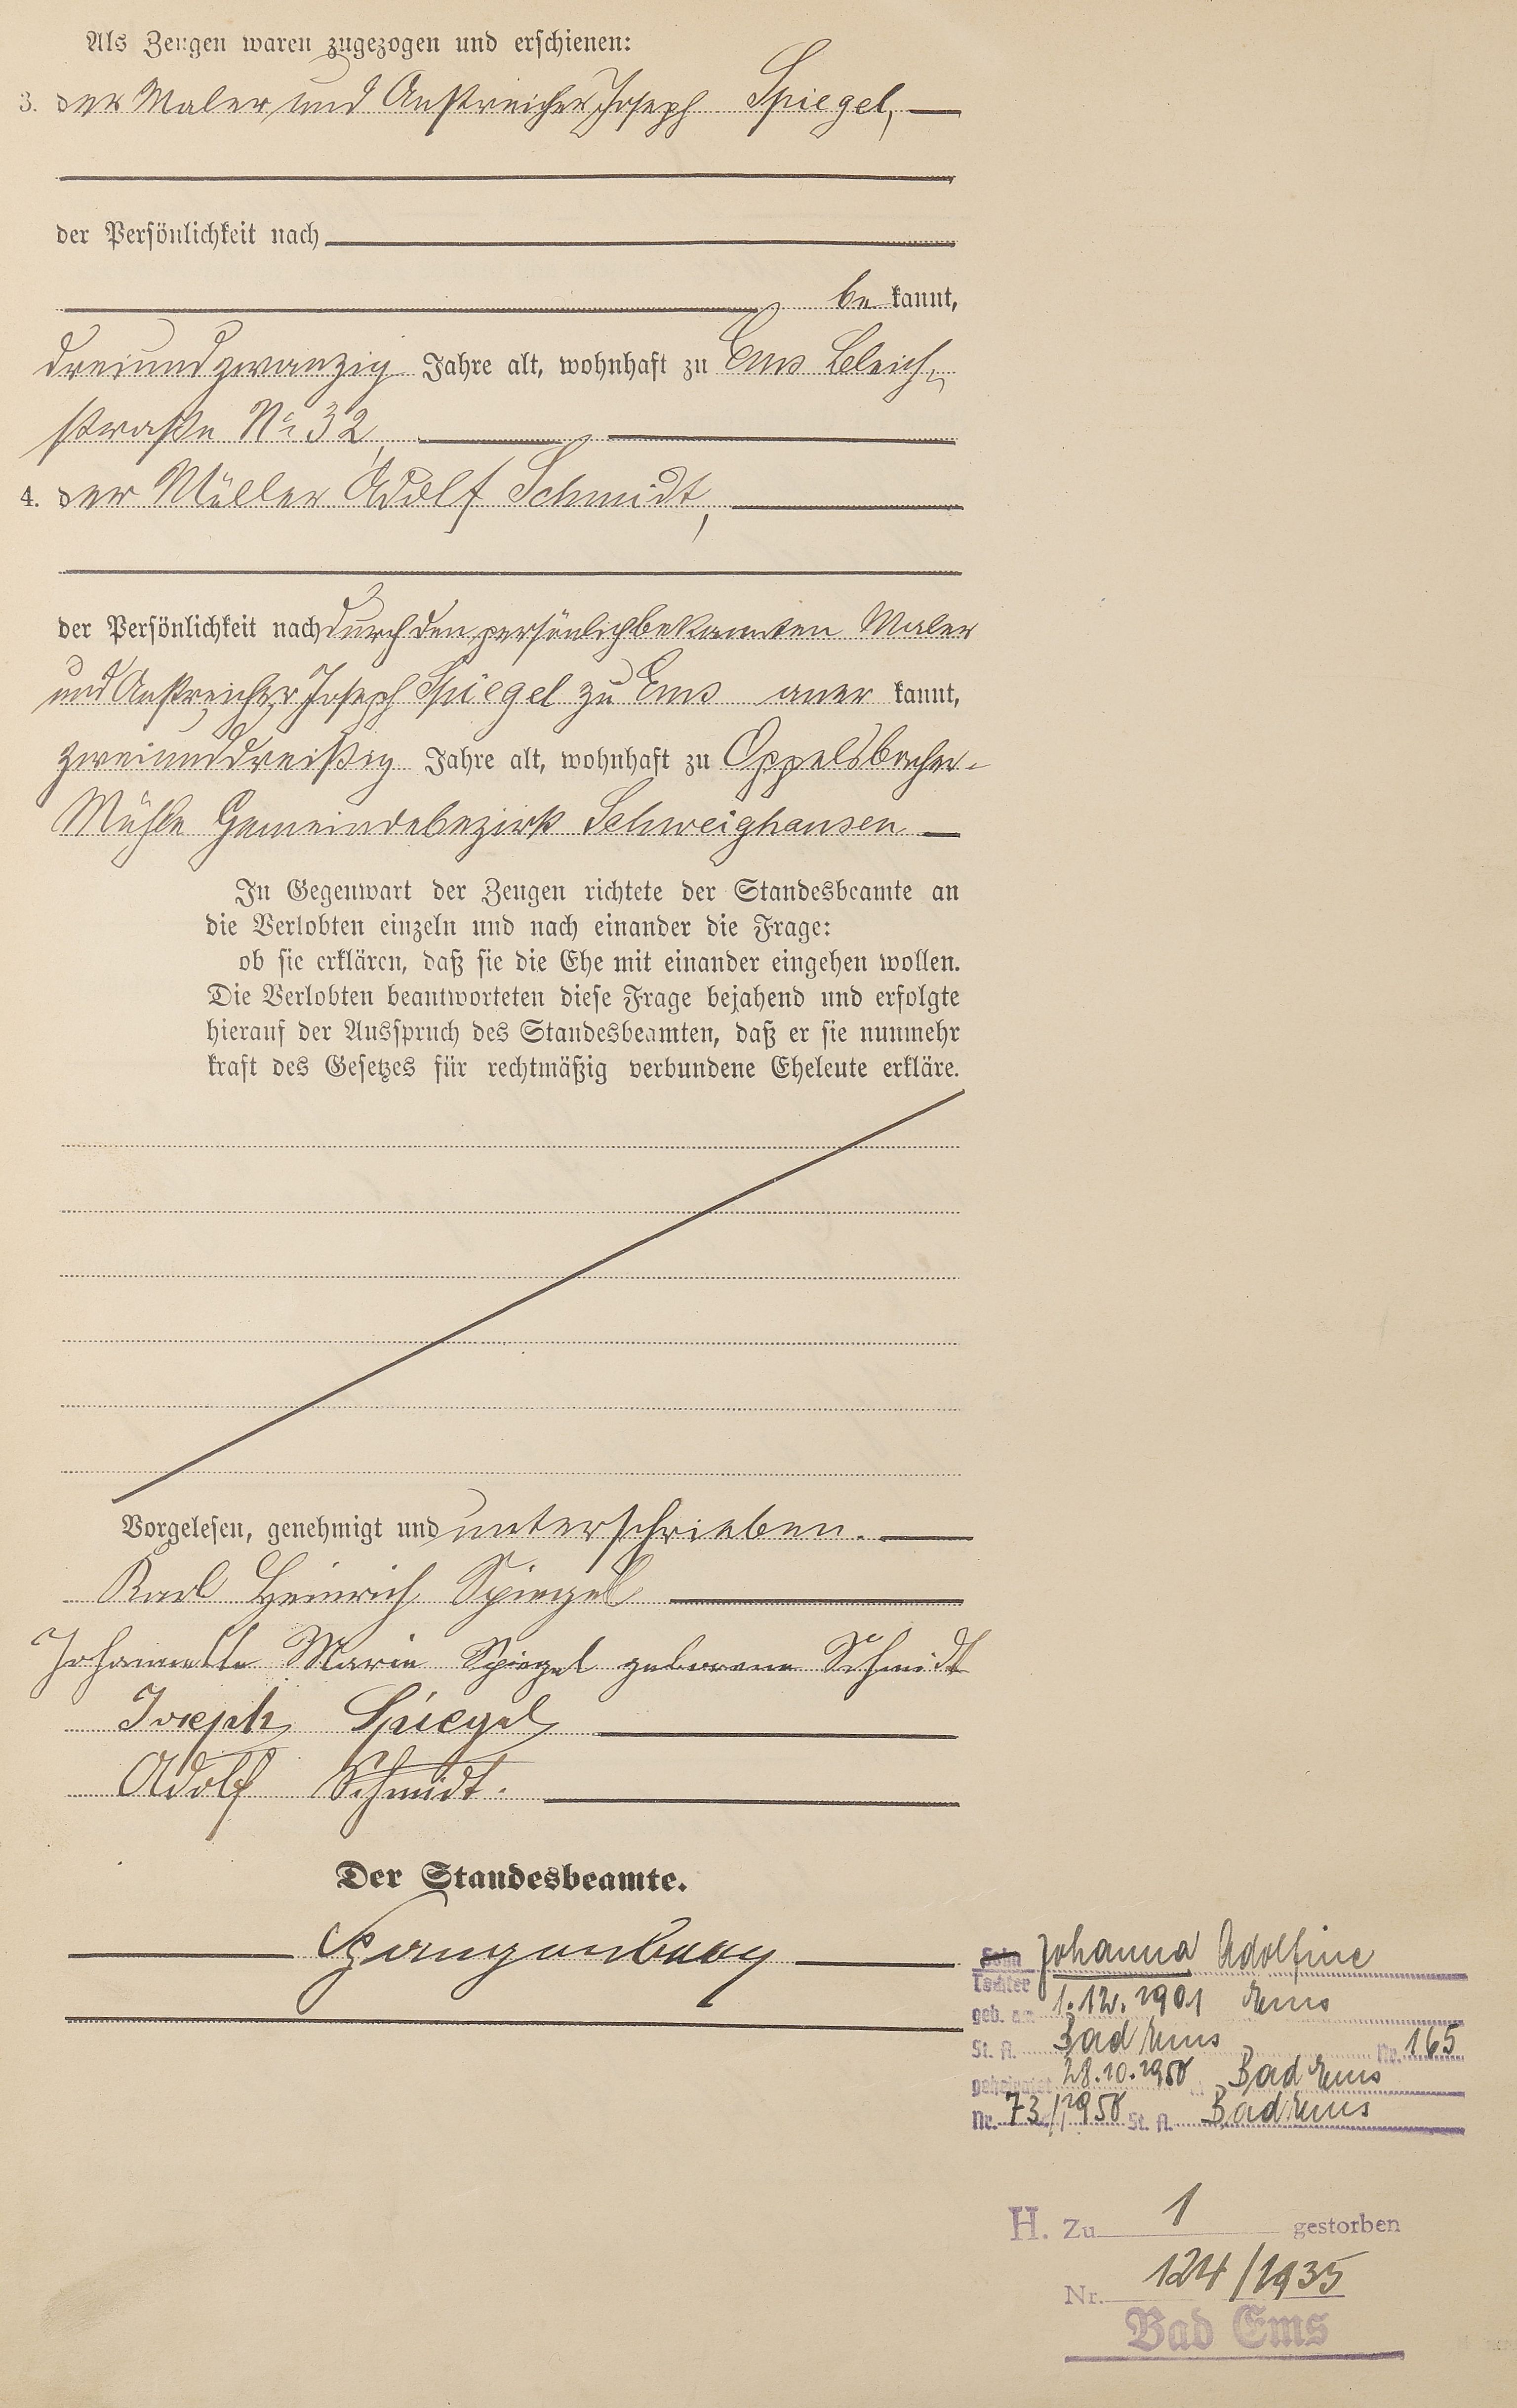 Als Zeugen waren zugezogen und erschienen:
3. der Maler und Anstreicher Joseph Spiegel,
der Persönlichkeit nach
be kannt,
dreiundzwanzig Jahre alt, wohnhaft zu Ems Bleich-
straße No 32,
4. der Müller Adolf Schmidt,
der Persönlichkeit nach durch den persönlich bekannten Maler
und Anstreicher Joseph Spiegel zu Ems aner kannt,
zweiunddreißig Jahre alt, wohnhaft zu Oppelsbacher-
Mühle Gemeindebezirk Schweighausen
In Gegenwart der Zeugen richtete der Standesbeamte an
die Verlobten einzeln und nach einander die Frage:
ob sie erklären, daß sie die Ehe mit einander eingehen wollen.
Die Verlobten beantworteten diese Frage bejahend und erfolgte
hierauf der Ausspruch des Standesbeamten, daß er sie nunmehr
kraft des Gesetzes für rechtmäßig verbundene Eheleute erkläre.
Vorgelesen, genehmigt und unterschrieben.
Karl Heinrich Spiegel
Johannette Marie Spiegel geborene Schmidt
Joseph Spiegel
Adolf Schmidt.
Der Standesbeamte.
Sohn Johanna Adolfine
Tochter
geb. am 1.12.1901 Ems
St. A. Bad Ems Nr. 165
geheiratet 28.10.1950 Bad Ems
Nr. 73/1950 St. A. Bad Ems
H. Zu 1 gestorben
Nr. 124/1935
Bad Ems